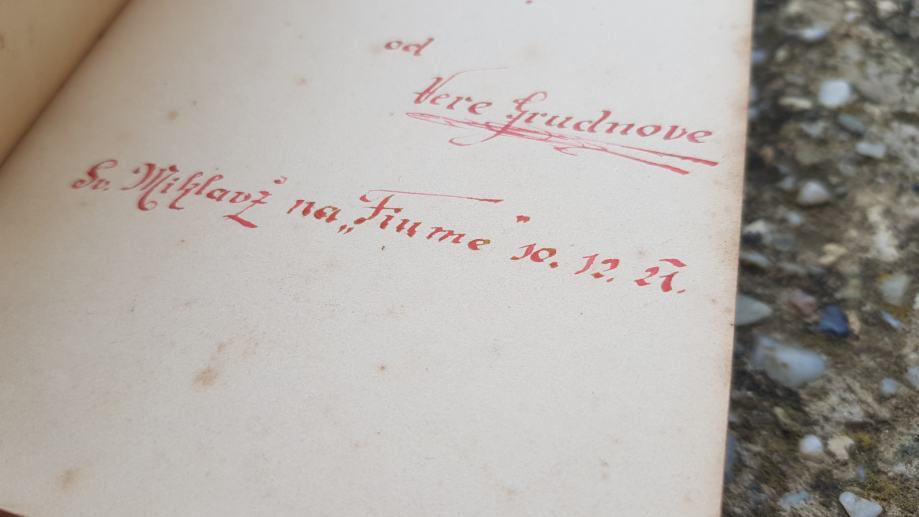 od
Vere Grudnove
Sv. Miklavž na „Fiume" 10. 12. 21.